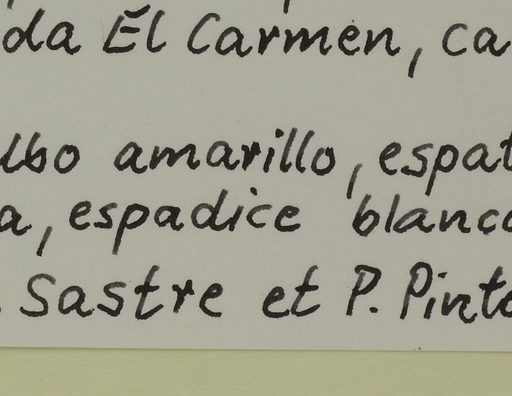 da El Carmen, ca
ulbo amarillo, espat
a, espadice blanco
. Sastre et P. Pinto